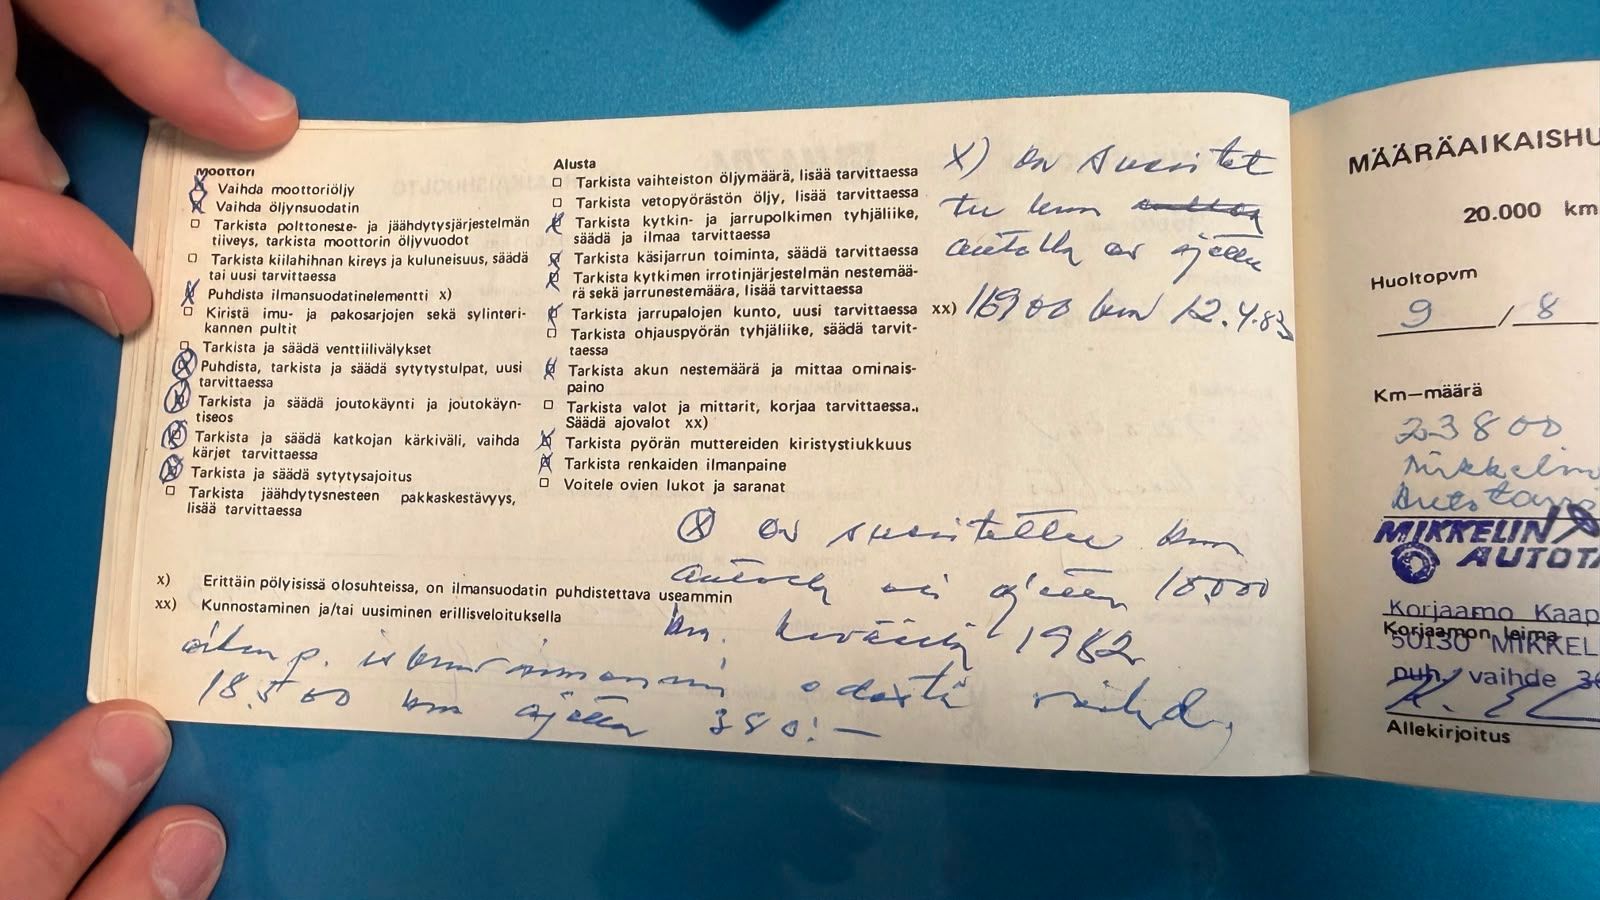 Moottori
Vaihda moottoriöljy
Vaihda öljynsuodatin
Tarkista polttoneste- ja jäähdytysjärjestelmän
tiiveys, tarkista moottorin öljyvuodot
Tarkista kiilahihnan kireys ja kuluneisuus, säädä
tai uusi tarvittaessa
Puhdista ilmansuodatinelementti x)
Kiristä imu- ja pakosarjojen sekä sylinteri-
kannen pultit
Tarkista ja säädä venttiilivälykset
Puhdista, tarkista ja säädä sytytystulpat, uusi
tarvittaessa
Tarkista ja säädä joutokäynti ja joutokäyn-
tiseos
Tarkista ja säädä katkojan kärkiväli, vaihda
kärjet tarvittaessa
Tarkista ja säädä sytytysajoitus
Tarkista jäähdytysnesteen pakkaskestävyys,
lisää tarvittaessa
Alusta
Tarkista vaihteiston öljymäärä, lisää tarvittaessa
Tarkista vetopyörästön öljy, lisää tarvittaessa
Tarkista kytkin- ja jarrupolkimen tyhjäliike,
säädä ja ilmaa tarvittaessa
Tarkista käsijarrun toiminta, säädä tarvittaessa
Tarkista kytkimen irrotinjärjestelmän nestemää-
rä sekä jarrunestemäärä, lisää tarvittaessa
Tarkista jarrupalojen kunto, uusi tarvittaessa xx)
Tarkista ohjauspyörän tyhjäliike, säädä tarvit-
taessa
Tarkista akun nestemäärä ja mittaa ominais-
paino
Tarkista valot ja mittarit, korjaa tarvittaessa.
Säädä ajovalot xx)
Tarkista pyörän muttereiden kiristystiukkuus
Tarkista renkaiden ilmanpaine
Voitele ovien lukot ja saranat
X) on suoritet
tu kun
autolla on ajettu
16900 km 12.4.83
Ⓧ on suoritettu kun
autolla on ajettu 10.000
km. keväällä 1982
x) Erittäin pölyisissä olosuhteissa, on ilmansuodatin puhdistettava useammin
xx) Kunnostaminen ja/tai uusiminen erillisveloituksella
oikean p. iskunvaimennin edestä vaihd,
18.500 km ajettu 380:—
MÄÄRÄAIKAISHU
20.000 km
Huoltopvm
9 / 8
Km—määrä
23800
Mikkelin
Autotarvi
MIKKELIN
AUTOTA
Korjaamo Kaap
Korjaamon leima
50130 MIKKEL
puh. vaihde 36
Allekirjoitus